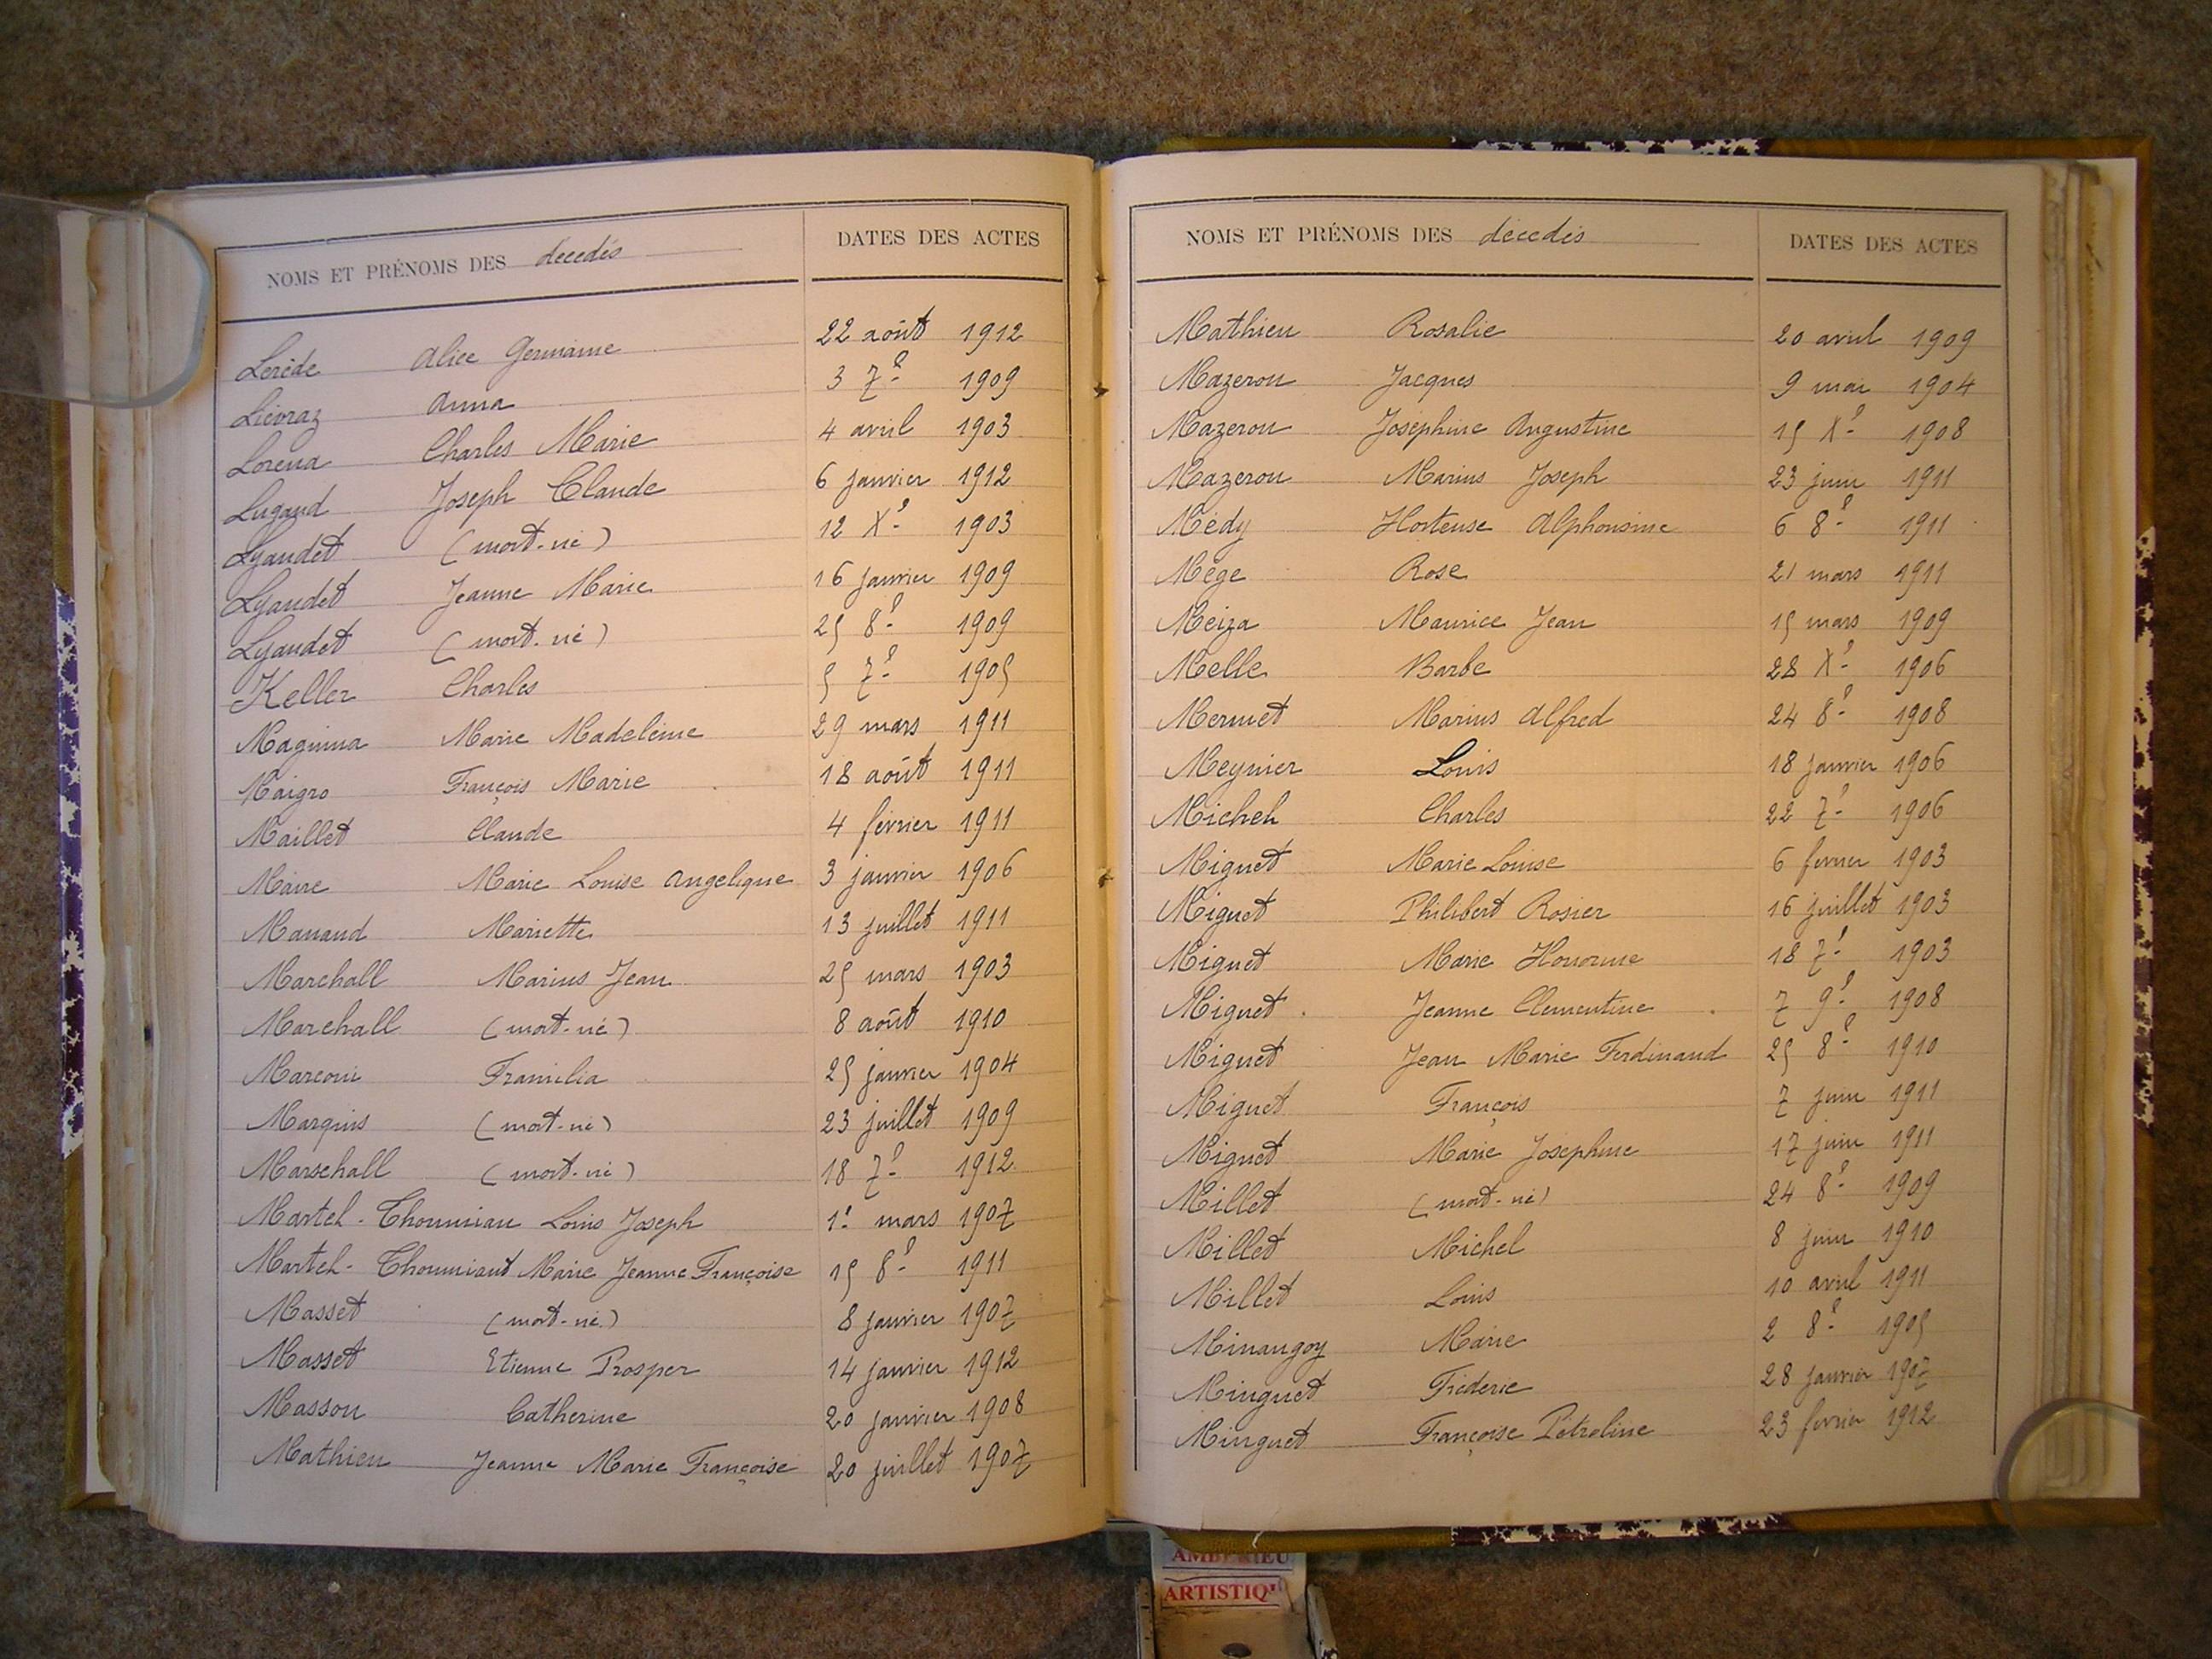 NOMS ET PRÉNOMS DES décédés DATES DES ACTES
Lerède Alice Germaine 22 août 1912
Liévraz Anna 3 7e 1909
Lorena Charles Marie 4 avril 1903
Lugand Joseph Claude 6 janvier 1912
Lyaudet (mort-né) 12 Xe 1903
Lyaudet Jeanne Marie 16 janvier 1909
Lyaudet (mort-né) 25 8e 1909
Keller Charles 5 7e 1905
Maginna Marie Madeleine 29 mars 1911
Maigro François Marie 18 août 1911
Maillet Claude 4 février 1911
Maire Marie Louise Angelique 3 janvier 1906
Manaud Mariette 13 juillet 1911
Marchall Marius Jean 25 mars 1903
Marchall (mort-né) 8 août 1910
Marconi Framilia 25 janvier 1904
Marquis (mort-né) 23 juillet 1909
Marschall (mort-né) 18 7e 1912
Martel-Thoumian Louis Joseph 1er mars 1907
Martel-Thoumiant Marie Jeanne Françoise 15 8e 1911
Masset (mort-né) 8 janvier 1907
Masset Etienne Prosper 14 janvier 1912
Masson Catherine 20 janvier 1908
Mathieu Jeanne Marie Françoise 20 juillet 1907
NOMS ET PRÉNOMS DES décédés DATES DES ACTES
Mathieu Rosalie 20 avril 1909
Mazerou Jacques 9 mai 1904
Mazerou Joséphine Augustine 15 Xe 1908
Mazerou Marius Joseph 23 juin 1911
Médy Hortense Alphonsine 6 8e 1911
Mège Rose 21 mars 1911
Meiza Maurice Jean 15 mars 1909
Melle Barbe 28 Xe 1906
Mermet Marius Alfred 24 8e 1908
Meynier Louis 18 janvier 1906
Michel Charles 22 7e 1906
Miguet Marie Louise 6 fevrier 1903
Miguet Philibert Rosier 16 juillet 1903
Miguet Marie Honorine 18 7e 1903
Miguet Jeanne Clementine 7 9e 1908
Miguet Jean Marie Ferdinand 25 8e 1910
Miguet François 7 juin 1911
Miguet Marie Josephine 17 juin 1911
Millet (mort-né) 24 8e 1909
Millet Michel 8 juin 1910
Millet Louis 10 avril 1911
Minangoy Marie 2 8e 1905
Minguet Fréderic 28 janvier 1907
Minguet Françoise Pétroline 23 fevrier 1912
AMBERIEU
ARTISTIQ